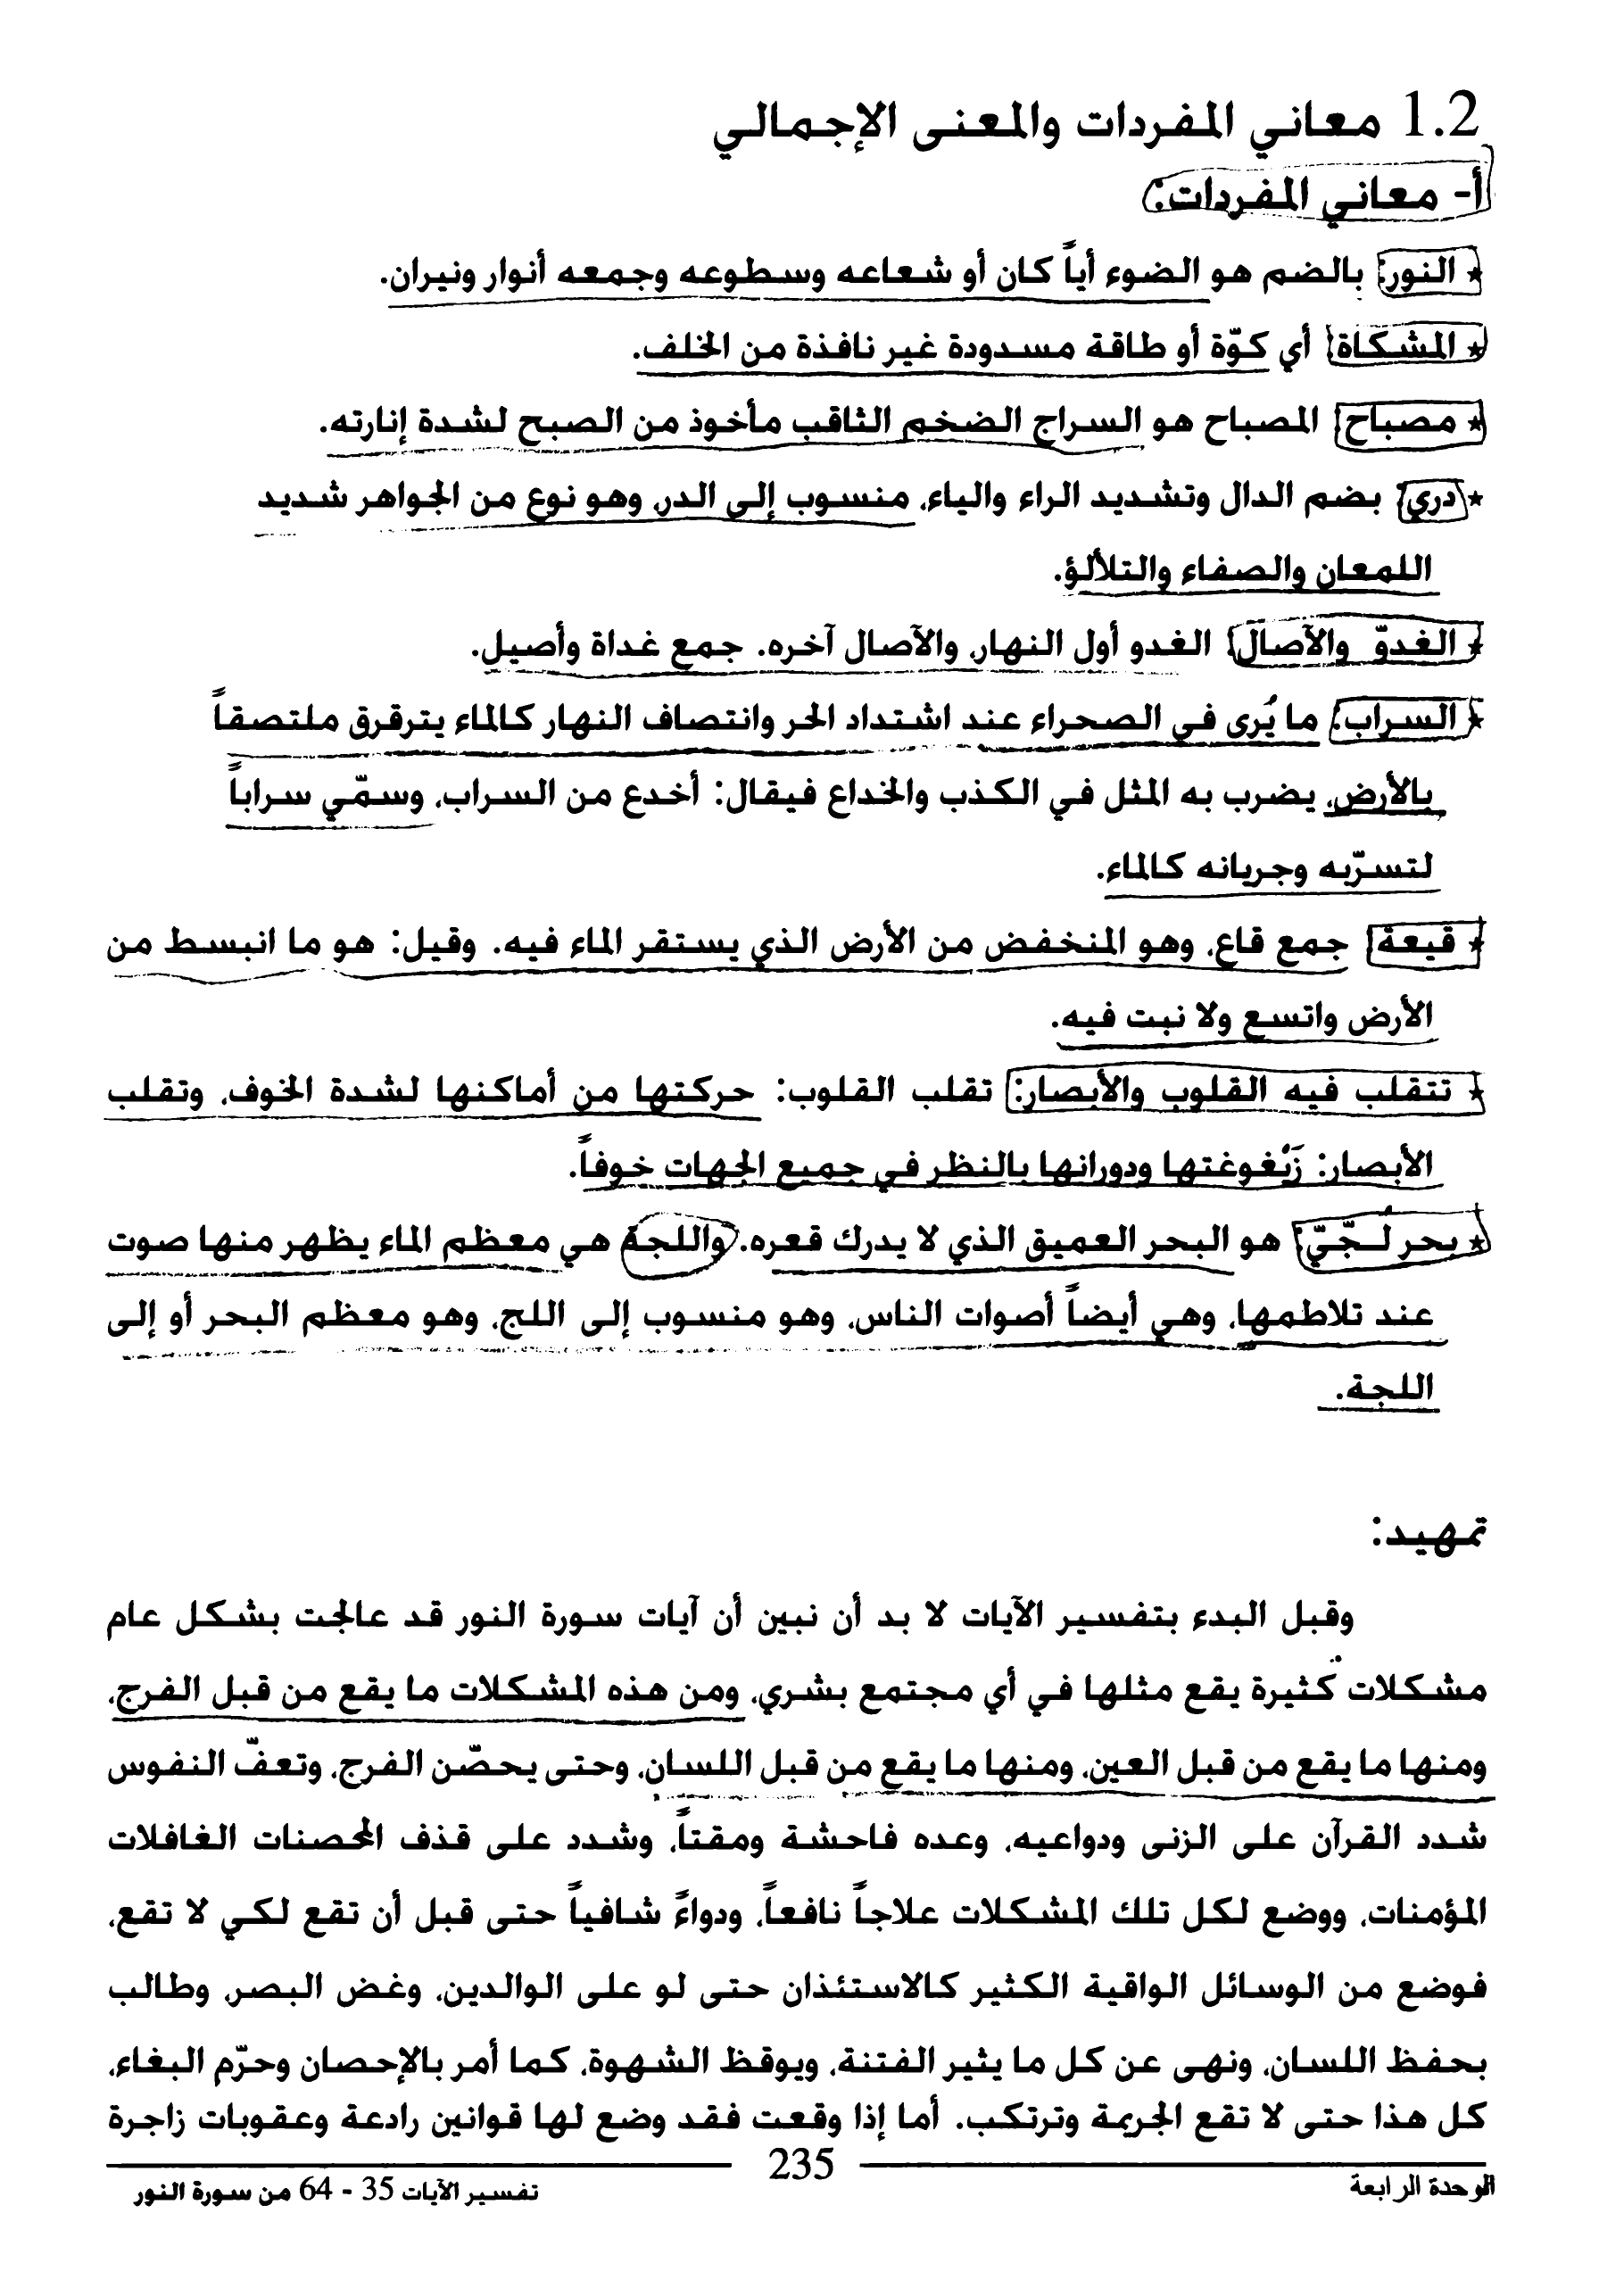 1.2 معاني المفردات والمعنى الإجمالي
أ- معاني المفردات:
* النور: بالضم هو الضوء أياً كان أو شعاعه وسطوعه وجمعه أنوار ونيران.
* المشكاة: أي كوّة أو طاقة مسدودة غير نافذة من الخلف.
* مصباح: المصباح هو السراج الضخم الثاقب مأخوذ من الصبح لشدة إنارته.
* دري: بضم الدال وتشديد الراء والياء، منسوب إلى الدر، وهو نوع من الجواهر شديد
اللمعان والصفاء والتلألؤ.
* الغدوّ والآصال: الغدو أول النهار، والآصال آخره. جمع غداة وأصيل.
* السراب: ما يُرى في الصحراء عند اشتداد الحر وانتصاف النهار كالماء يترقرق ملتصقاً
بالأرض، يضرب به المثل في الكذب والخداع فيقال: أخدع من السراب، وسمّي سراباً
لتسرّبه وجريانه كالماء.
* قيعة: جمع قاع، وهو المنخفض من الأرض الذي يستقر الماء فيه. وقيل: هو ما انبسط من
الأرض واتسع ولا نبت فيه.
* تتقلب فيه القلوب والأبصار: تقلب القلوب: حركتها من أماكنها لشدة الخوف، وتقلب
الأبصار: زَيْغوغتها ودورانها بالنظر في جميع الجهات خوفاً.
* بحر لُجّيّ: هو البحر العميق الذي لا يدرك قعره. واللجة هي معظم الماء يظهر منها صوت
عند تلاطمها، وهي أيضاً أصوات الناس، وهو منسوب إلى اللج، وهو معظم البحر أو إلى
اللجة.
تمهيد:
وقبل البدء بتفسير الآيات لا بد أن نبين أن آيات سورة النور قد عالجت بشكل عام
مشكلات كثيرة يقع مثلها في أي مجتمع بشري، ومن هذه المشكلات ما يقع من قبل الفرج،
ومنها ما يقع من قبل العين، ومنها ما يقع من قبل اللسان، وحتى يحصّن الفرج، وتعفّ النفوس
شدد القرآن على الزنى ودواعيه، وعده فاحشة ومقتاً، وشدد على قذف المحصنات الغافلات
المؤمنات، ووضع لكل تلك المشكلات علاجاً نافعاً، ودواءً شافياً حتى قبل أن تقع لكي لا تقع،
فوضع من الوسائل الواقية الكثير كالاستئذان حتى لو على الوالدين، وغض البصر، وطالب
بحفظ اللسان، ونهى عن كل ما يثير الفتنة، ويوقظ الشهوة، كما أمر بالإحصان وحرّم البغاء،
كل هذا حتى لا تقع الجريمة وترتكب. أما إذا وقعت فقد وضع لها قوانين رادعة وعقوبات زاجرة
235
الوحدة الرابعة
تفسير الآيات 35 - 64 من سورة النور